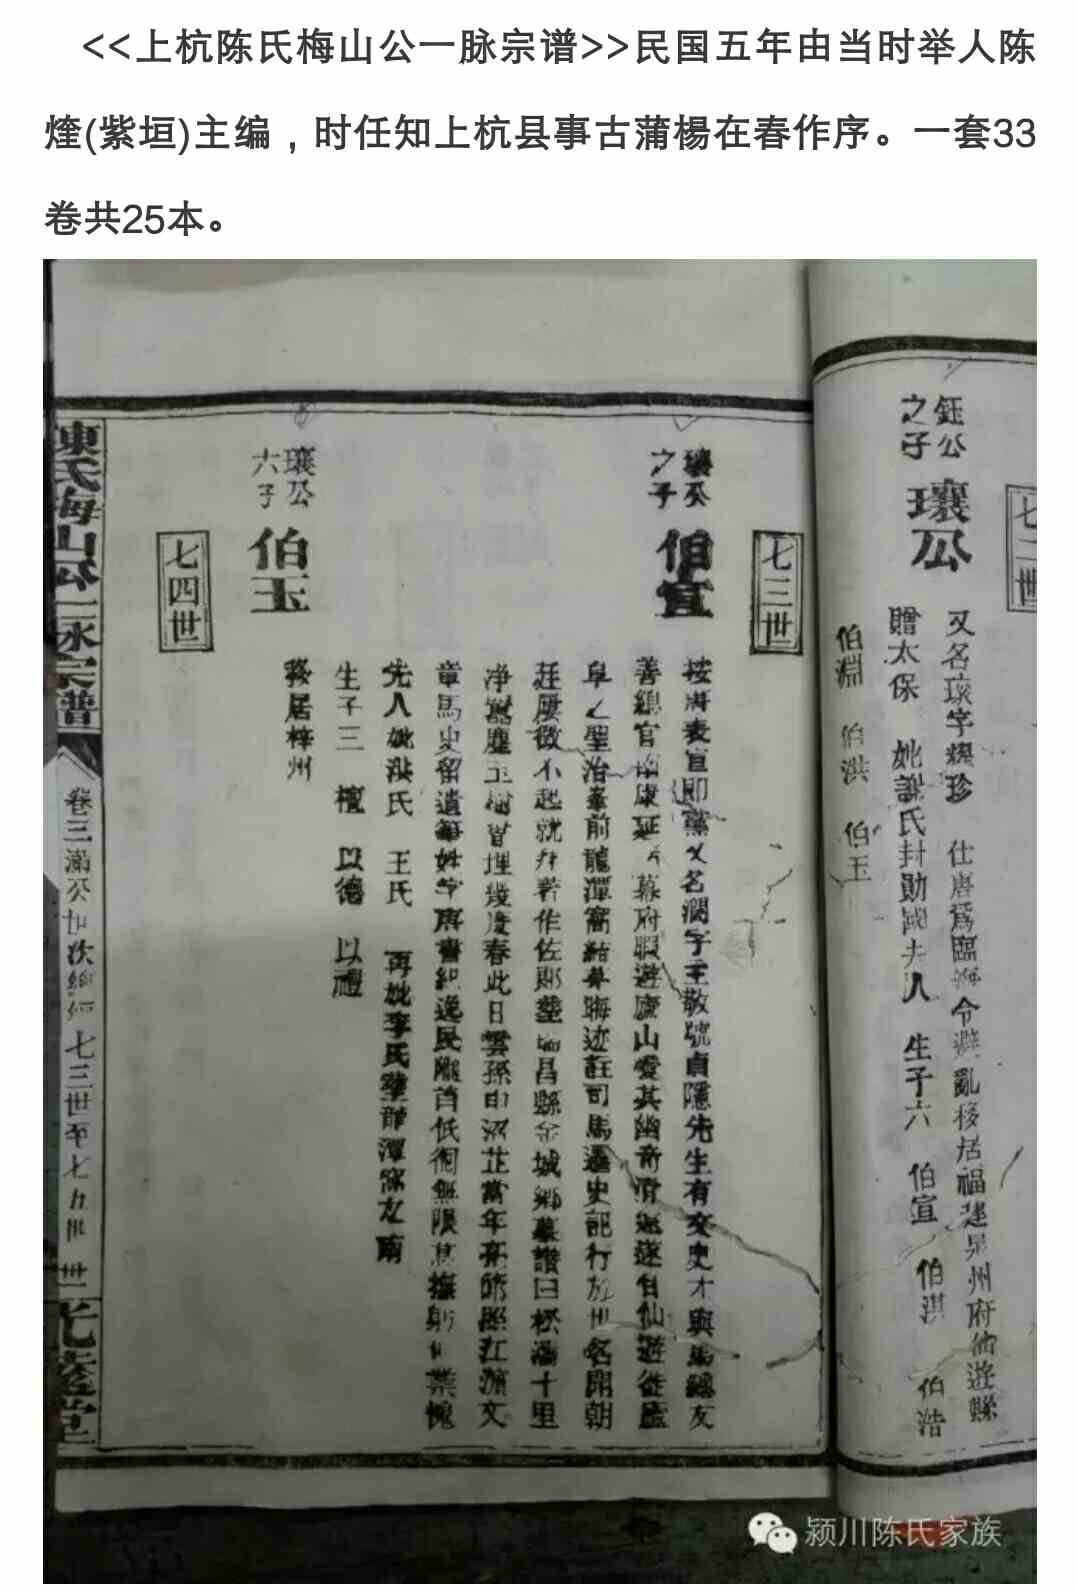 <<上杭陈氏梅山公一脉宗谱>>民国五年由当时举人陈
煃(紫垣)主编，时任知上杭县事古蒲楊在春作序。一套33
卷共25本。
七二世
鈺公
之子
瓌公
又名瓌字耀珍 仕唐爲臨海令避亂移居福建泉州府仙遊縣
贈太保 妣謝氏封勛國夫人 生子六 伯宣 伯淇 伯浩
伯淵 伯洪 伯玉
七三世
瓌公
之子
伯宣
按唐表宣即黨又名濶字主敬號貞隱先生有文史才與馬總友
善總官南康延入幕府暇遊廬山愛其幽奇清遂自仙遊徙廬
阜之聖治峯前龍潭窩結茅晦迹註司馬遷史記行於世名聞朝
廷屢徵不起就拜著作佐郎塟瑞昌縣金城鄉墓讚曰松濤十里
净囂塵玉樹曾埋幾度春此日雲孫由沼芷當年亭節照江濱文
章馬史留遺筆姓字唐書紀逸民隴首低徊無限 撫 業愧
先人妣洪氏 王氏 再妣李氏塟龍潭窩之南
生子三 檀 以德 以禮
瓌公
六子
伯玉
務居梓州
七四世
陳氏梅山公一脉宗譜
卷三滿公世次總 七三世至七五世
卅一
光套堂
颍川陈氏家族